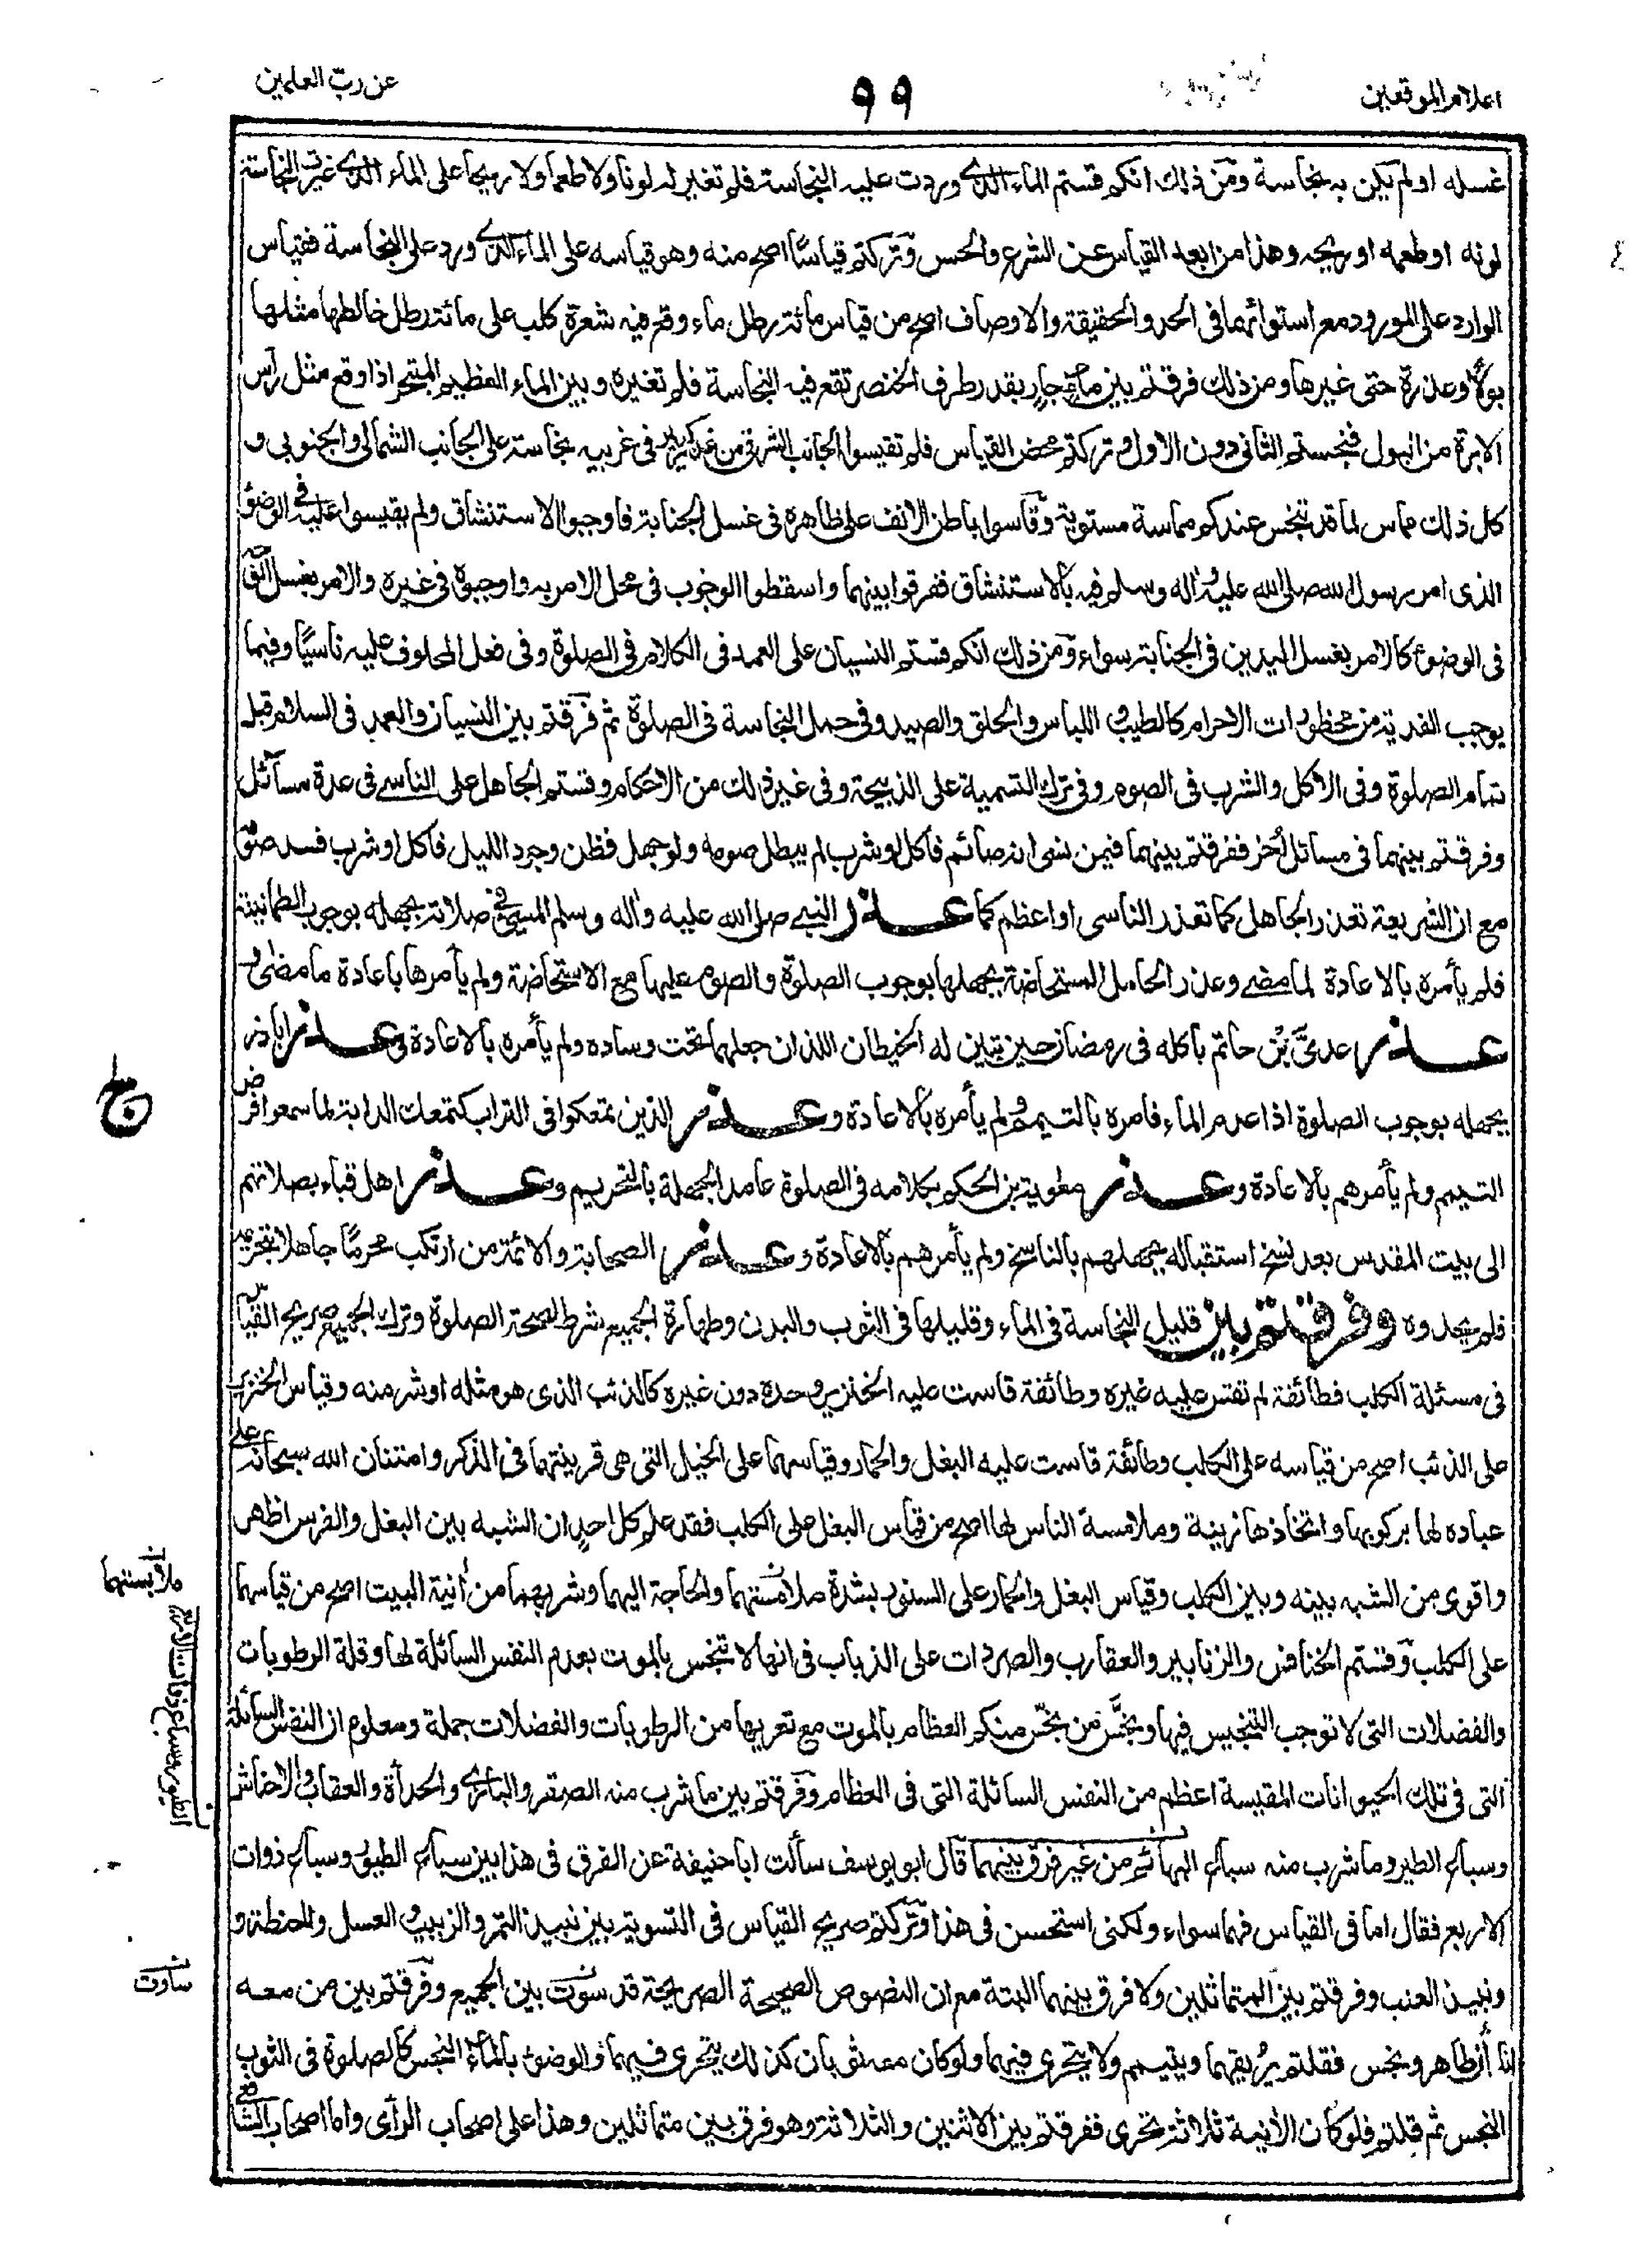 اعلام الموقعين
٩٩
عن رب العلمين
غسله او لم يكن به نجاسة ومن ذلك انكم قستم الماء الذى وردت عليه النجاسة فلم تغير له لونا ولا طعما ولا ريحا على الماء الذى غيرت النجاسة
لونه او طعمه او ريحه وهذا من ابعد القياس عن الشرع والحس وتركتم قياسًا اصح منه وهو قياسه على الماء الذى ورد على النجاسة فقياس
الوارد على المورود مع استوائهما فى الحد والحقيقة والاوصاف اصح من قياس مائة رطل ماء وقع فيه شعرة كلب على مائة رطل خالطها مثلها
بولًا وعذرة حتى غيرها ومن ذلك فرقتم بين ماء جارٍ بقدر طرف الخنصر تقع فيه النجاسة فلم تغيره وبين الماء العظيم المتبحر اذا وقع مثل رأس
الابرة من البول فنجستم الثانى دون الاول وتركتم محض القياس فلم تقيسوا الجانب الشرقى من غدير كبير فى غربيه نجاسة على الجانب الشمالى والجنوبى و
كل ذلك مماس لما قد تنجس عندكم مماسة مستوية وقاسوا باطن الانف على ظاهره فى غسل الجنابة فاوجبوا الاستنشاق ولم يقيسوا عليه فى الوضوء
الذى امر رسول الله صلى الله عليه وآله وسلم فيه بالاستنشاق ففرقوا بينهما واسقطوا الوجوب فى محل الامر به واوجبوه فى غيره والامر بغسل الوجه
فى الوضوء كالامر بغسل اليدين فى الجنابة سواء ومن ذلك انكم قستم النسيان على العمد فى الكلام فى الصلوة وفى فعل المحلوف عليه ناسيًا وفيما
يوجب الفدية من محظورات الاحرام كالطيب واللباس والحلق والصيد وفى حمل النجاسة فى الصلوة ثم فرقتم بين النسيان والعمد فى السلام قبل
تمام الصلوة وفى الاكل والشرب فى الصوم وفى ترك التسمية على الذبيحة وفى غير ذلك من الاحكام وقستم الجاهل على الناسى فى عدة مسائل
وفرقتم بينهما فى مسائل أخر ففرقتم بينهما فيمن نسى انه صائم فاكل او شرب لم يبطل صومه ولو جهل فظن وجود الليل فاكل او شرب فسد صومه
مع ان الشريعة تعذر الجاهل كما تعذر الناسى او اعظم كما عذر النبى صلى الله عليه وآله وسلم المسيئ فى صلاته بجهله بوجوب الطمانينة
فلم يأمره بالاعادة لما مضى وعذر الحامل المستحاضة بجهلها بوجوب الصلوة والصوم عليها مع الاستحاضة ولم يأمرها باعادة ما مضى و
عذر عدى بن حاتم باكله فى رمضان حين تبين له الخيطان اللذان جعلهما تحت وساده ولم يأمره بالاعادة وعذر اباذر
بجهله بوجوب الصلوة اذا عدم الماء فامره بالتيمم ولم يأمره بالاعادة وعذر الذين تمعكوا فى التراب كتمعك الدابة لما سمعوا فرض
التيمم ولم يأمرهم بالاعادة وعذر معوية بن الحكم بكلامه فى الصلوة عامدا لجهله بالتحريم وعذر اهل قباء بصلاتهم
الى بيت المقدس بعد نسخ استقباله بجهلهم بالناسخ ولم يأمرهم بالاعادة وعذر الصحابة والائمة من ارتكب محرمًا جاهلا بتحريمه
فلم يحدوه وفرقتم بين قليل النجاسة فى الماء وقليلها فى الثوب والبدن وطهارة الجميع شرط لصحة الصلوة وترك الجميع صريح القياس
فى مسئلة الكلب فطائفة لم تقس عليه غيره وطائفة قاست عليه الخنزير وحده دون غيره كالذئب الذى هو مثله او شر منه وقياس الخنزير
على الذئب اصح من قياسه على الكلب وطائفة قاست عليه البغل والحمار وقياسهما على الخيل التى هى قرينتهما فى الذكر وامتنان الله سبحانه على
عباده لها بركوبها واتخاذها زينة وملامسة الناس لها اصح من قياس البغل على الكلب فقد علم كل احدٍ ان الشبه بين البغل والفرس اظهر
واقوى من الشبه بينه وبين الكلب وقياس البغل والحمار على السنور بشدة ملامستهما والحاجة اليهما وشربهما من أنية البيت اصح من قياسهما
على الكلب وقستم الخنافس والزنابير والعقارب والصردات على الذباب فى انها لا تنجس بالموت بعدم النفس السائلة لها وقلة الرطوبات
والفضلات التى لا توجب التنجيس فيها ونجّس من نجّس منكم العظام بالموت مع تعريها من الرطوبات والفضلات جملة ومعلوم ان النفس السائلة
التى فى تلك الحيوانات المقيسة اعظم من النفس السائلة التى فى العظام وفرقتم بين ما شرب منه الصقر والبازى والحدأة والعقاب والاحناش
وسباع الطير وما شرب منه سباع البهائم من غير فرق بينهما قال ابو يوسف سألت ابا حنيفة عن الفرق فى هذا بين سباع الطير وسباع ذوات
الاربع فقال اما فى القياس فهما سواء ولكنى استحسن فى هذا وتركتم صريح القياس فى التسوية بين نبيذ التمر والزبيب والعسل والحنطة و
ونبيذ العنب وفرقتم بين المتماثلين ولا فرق بينهما البتة مع ان النصوص الصحيحة الصريحة قد سوت بين الجميع وفرقتم بين من معه
انا أن طاهر ونجس فقلتم يريقهما ويتيمم ولا يتحرى فيهما ولو كان معه ثوبان كذلك يتحرى فيهما والوضوء بالماء النجس كالصلوة فى الثوب
النجس ثم قلتم فلو كان الأنية ثلاثة تحرى ففرقتم بين الاثنين والثلاثة وهو فرق بين متماثلين وهذا على اصحاب الرأى واما اصحاب الشافعى
ملابستهما
ساوت